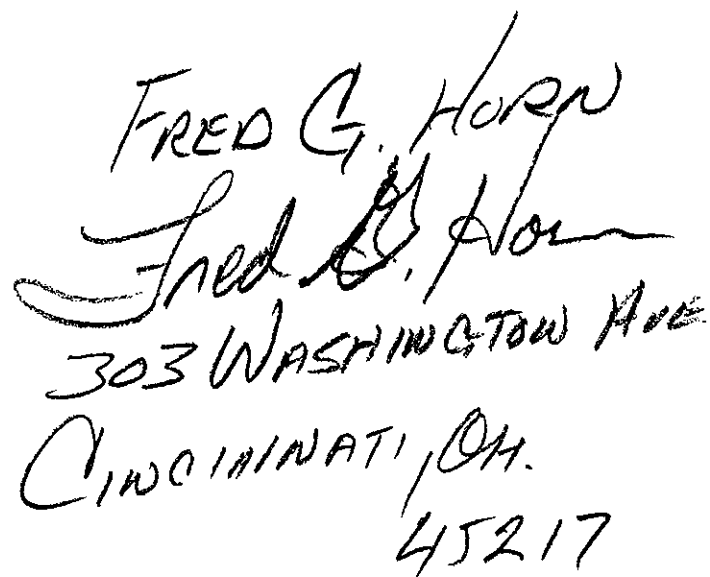 FRED G. HORN
Fred G. Horn
303 WASHINGTON AVE
CINCINNATI, OH.
45217